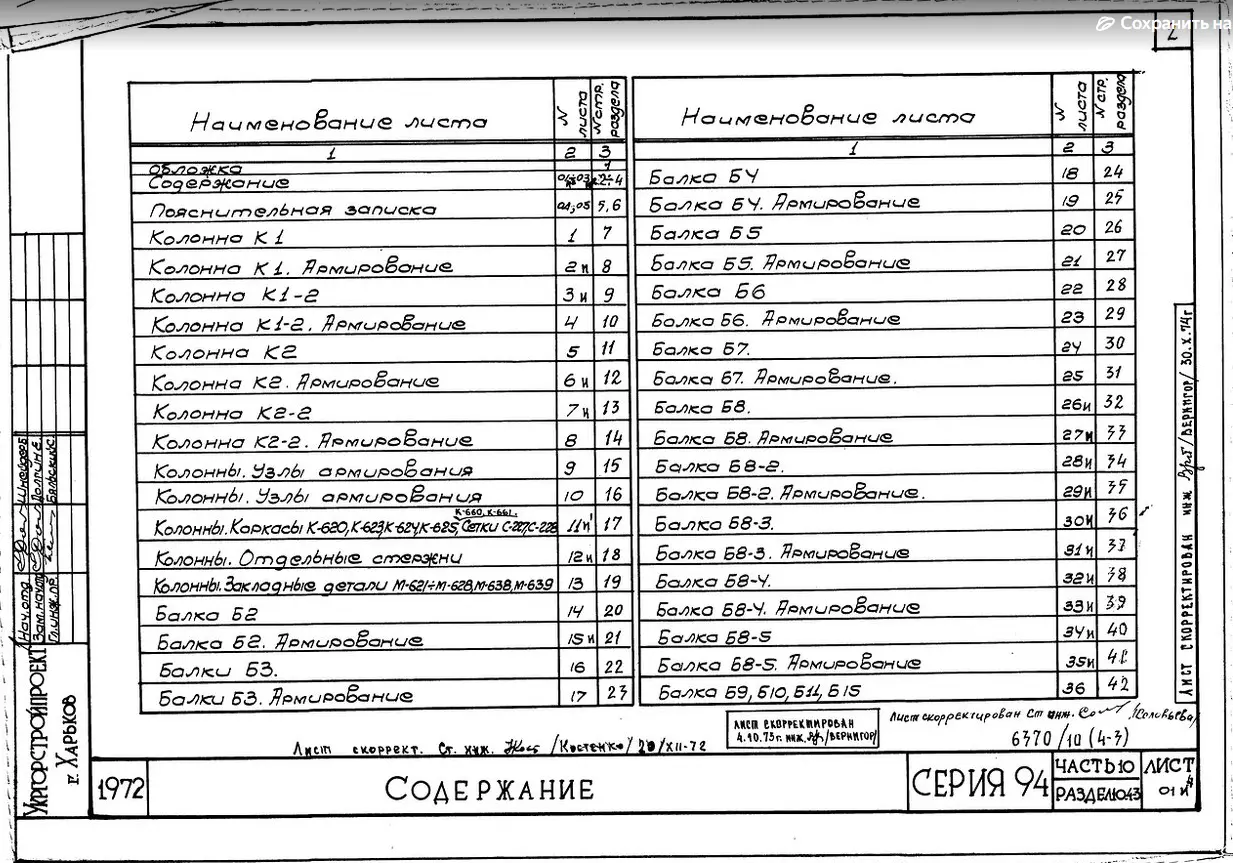 Сохранить на
2
Наименование листа | N листа | N стр. раздела
1 | 2 | 3
Обложка | 1
Содержание | 01÷03 | 2÷4
Пояснительная записка | 04,05 | 5,6
Колонна К1 | 1 | 7
Колонна К1. Армирование | 2и | 8
Колонна К1-2 | 3и | 9
Колонна К1-2. Армирование | 4 | 10
Колонна К2 | 5 | 11
Колонна К2. Армирование | 6и | 12
Колонна К2-2 | 7и | 13
Колонна К2-2. Армирование | 8 | 14
Колонны. Узлы армирования | 9 | 15
Колонны. Узлы армирования | 10 | 16
К-660, К-661.
Колонны. Каркасы К-620, К-623, К-624, К-625, Сетки С-227, С-228 | 11и | 17
Колонны. Отдельные стержни | 12и | 18
Колонны. Закладные детали М-621÷М-628, М-638, М-639 | 13 | 19
Балка Б2 | 14 | 20
Балка Б2. Армирование | 15и | 21
Балки Б3. | 16 | 22
Балки Б3. Армирование | 17 | 23
Наименование листа | N листа | N стр. раздела
1 | 2 | 3
Балка Б4 | 18 | 24
Балка Б4. Армирование | 19 | 25
Балка Б5 | 20 | 26
Балка Б5. Армирование | 21 | 27
Балка Б6 | 22 | 28
Балка Б6. Армирование | 23 | 29
Балка Б7. | 24 | 30
Балка Б7. Армирование. | 25 | 31
Балка Б8. | 26и | 32
Балка Б8. Армирование | 27и | 33
Балка Б8-2. | 28и | 34
Балка Б8-2. Армирование. | 29и | 35
Балка Б8-3. | 30и | 36
Балка Б8-3. Армирование | 31и | 37
Балка Б8-4. | 32и | 38
Балка Б8-4. Армирование | 33и | 39
Балка Б8-5 | 34и | 40
Балка Б8-5. Армирование | 35и | 41
Балка Б9, Б10, Б11, Б15 | 36 | 42
Лист скорректирован инж. /Вернигор/ 30.X.74г
Нач. отд. Шнейдер
Зам. нач. отд.
Гл. инж. пр.
Укргорстройпроект
г. Харьков
Лист скоррект. Ст. инж. /Костенко/ 20/XII-72
Лист скорректирован
4.10.73г. инж. /Вернигор/
Лист скорректирован Ст инж. /Соловьева/
6370/10 (4-3)
1972
Содержание
Серия 94
Часть 10
Раздел 10.43
Лист
01 и